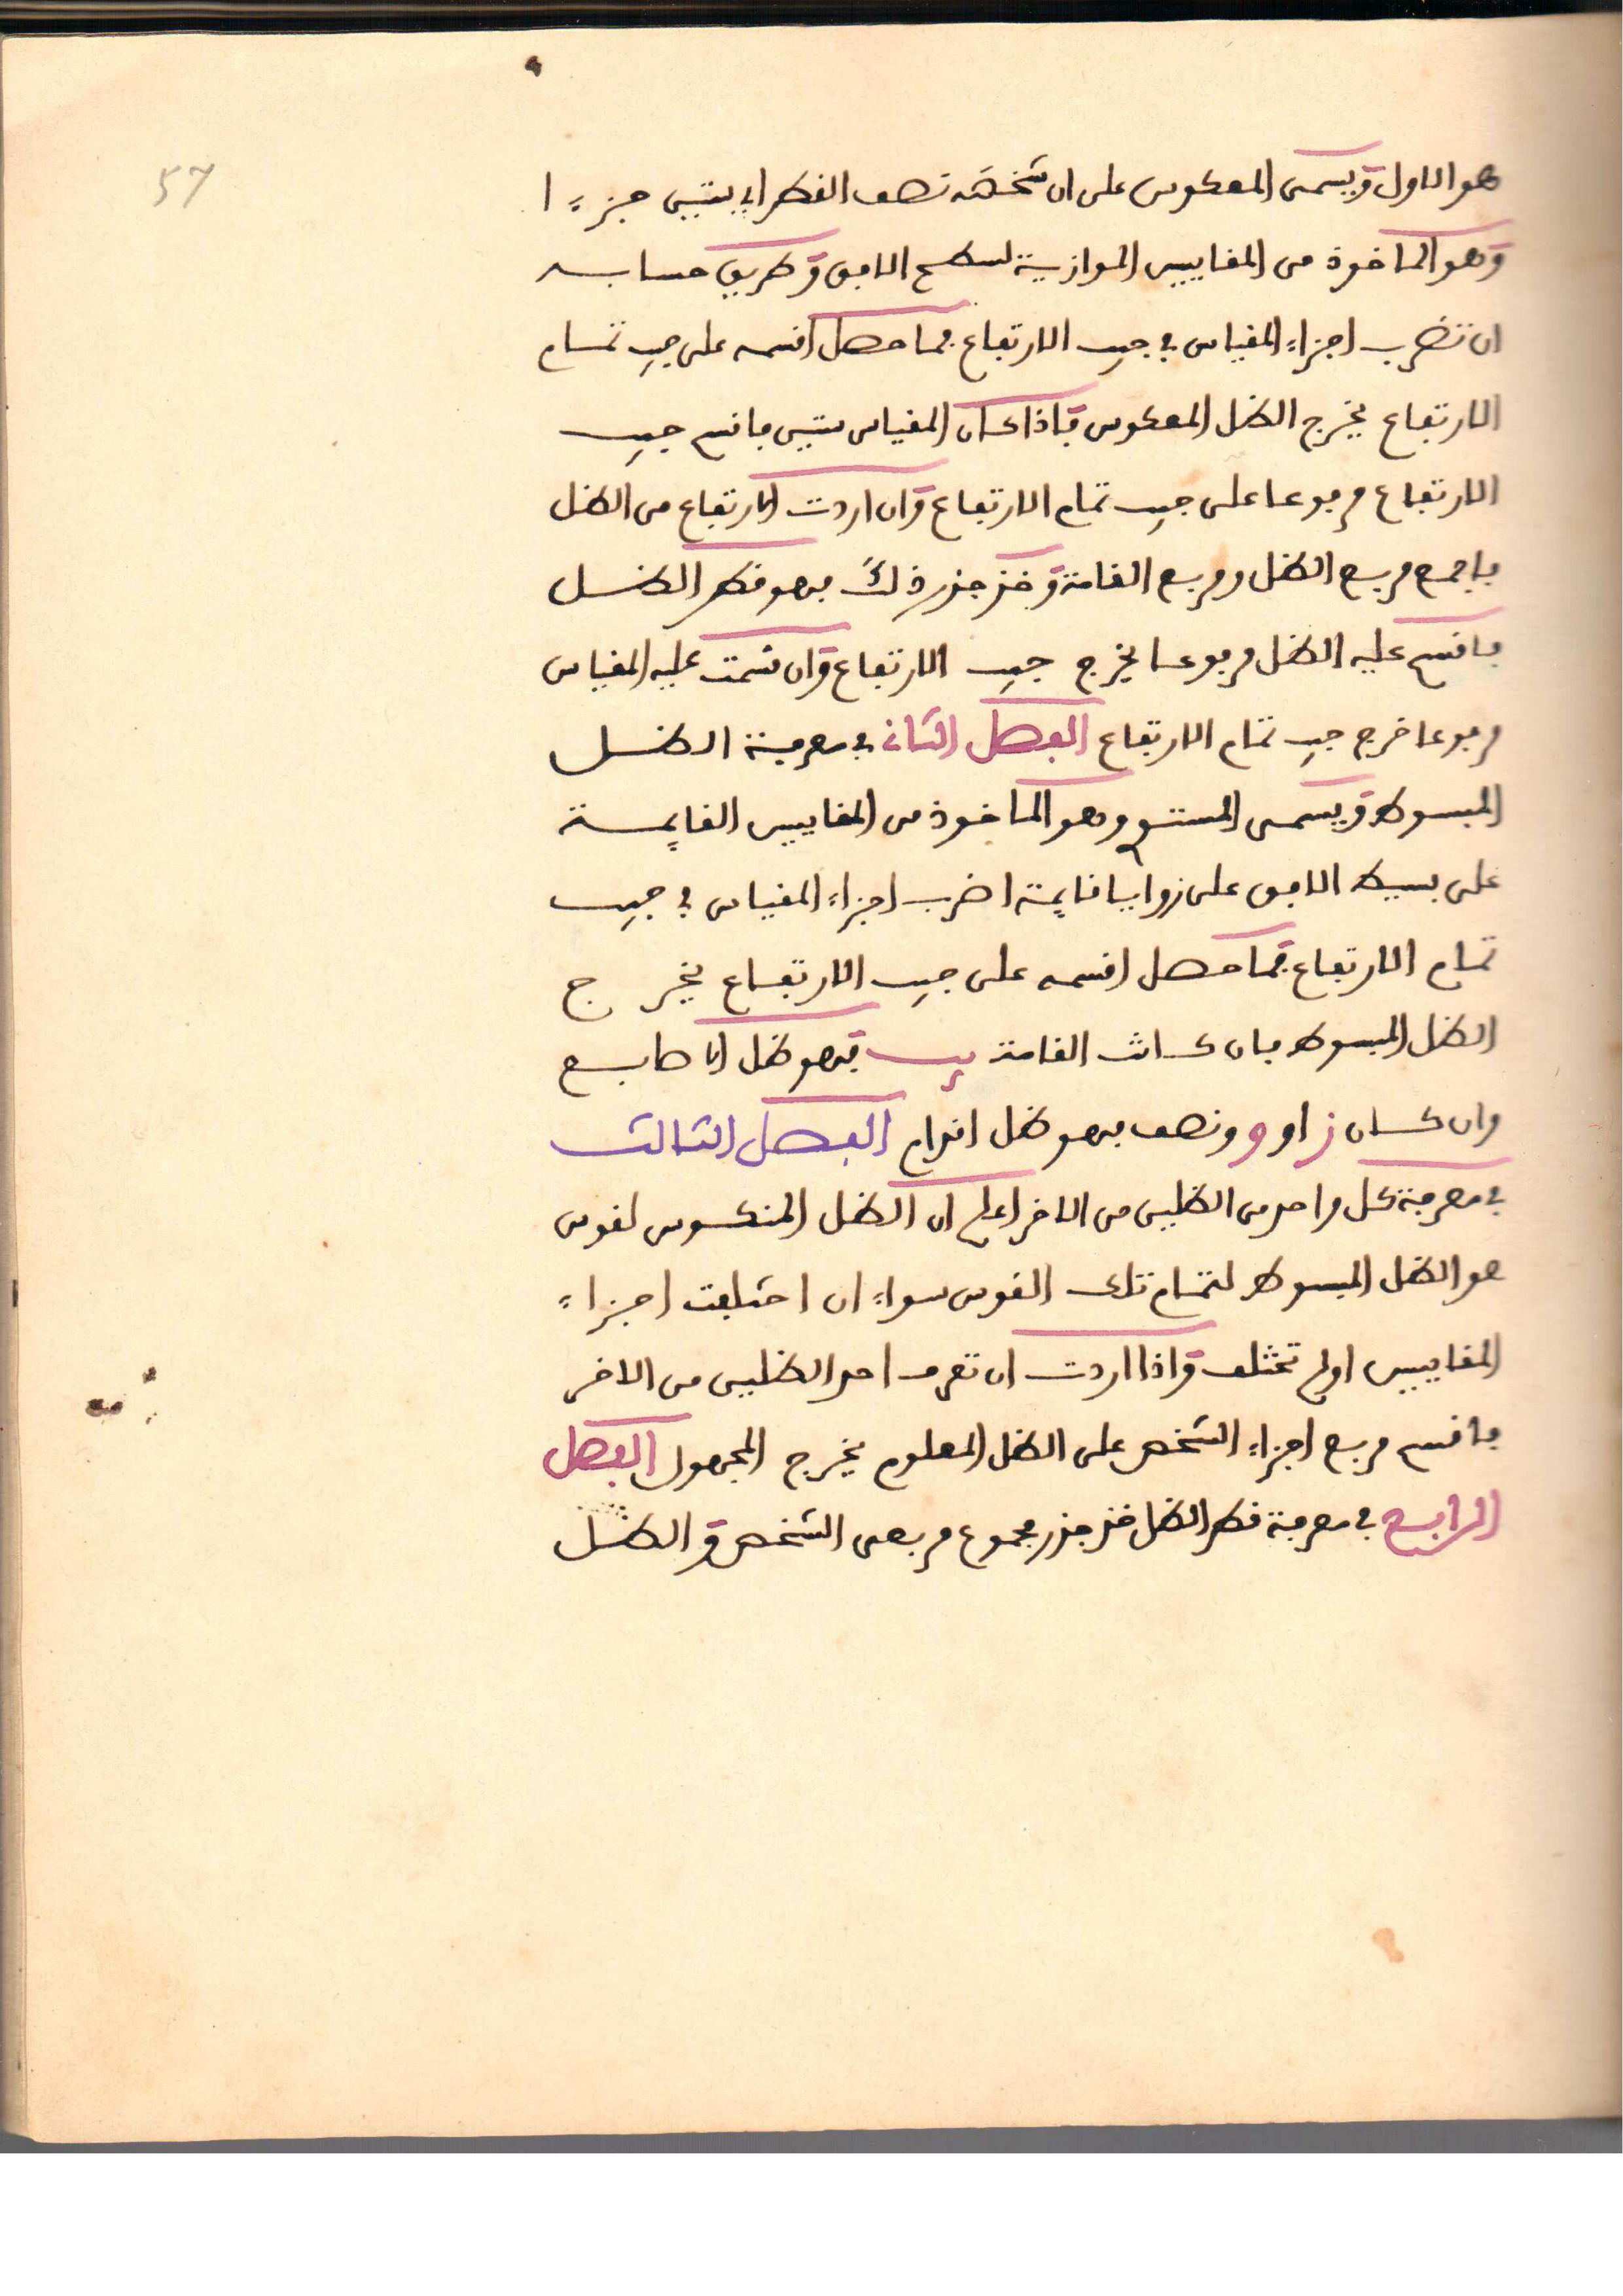 57
هو الاول ويسمى المعكوس على ان شخصه نصف القطر اي ستين جزءا
وهو الماخوذ من المقاييس الموازية لسطح الافق وطريق حسابه
ان تضرب اجزاء المقياس في جيب الارتفاع فما حصل اقسمه على جيب تمام
الارتفاع يخرج الظل المعكوس فاذا كان المقياس ستين فاقسم جيب
الارتفاع مرفوعا على جيب تمام الارتفاع وان اردت الارتفاع من الظل
فاجمع مربع الظل ومربع القامة وخذ جذر ذلك فهو قطر الظل
فاقسم عليه الظل مرفوعا يخرج جيب الارتفاع وان قسمت عليه المقياس
مرفوعا خرج جيب تمام الارتفاع الفصل الثاني في معرفة الظل
المبسوط ويسمى المستوي وهو الماخوذ من المقاييس القايمة
على بسيط الافق على زوايا قايمة اضرب اجزاء المقياس في جيب
تمام الارتفاع فما حصل اقسمه على جيب الارتفاع يخرج
الظل المبسوط فان كانت القامة يب فهو ظل الاصابع
وان كان ز او و ونصف فهو ظل اقدام الفصل الثالث
في معرفة كل واحد من الظلين من الاخر اعلم ان الظل المنكوس لقوس
هو الظل المبسوط لتمام تلك القوس سواء ان اختلفت اجزاء
المقاييس او لم تختلف واذا اردت ان تعرف احد الظلين من الاخر
فاقسم مربع اجزاء الشخص على الظل المعلوم يخرج المجهول الفصل
الرابع في معرفة قطر الظل خذ جذر مجموع مربعي الشخص والظل